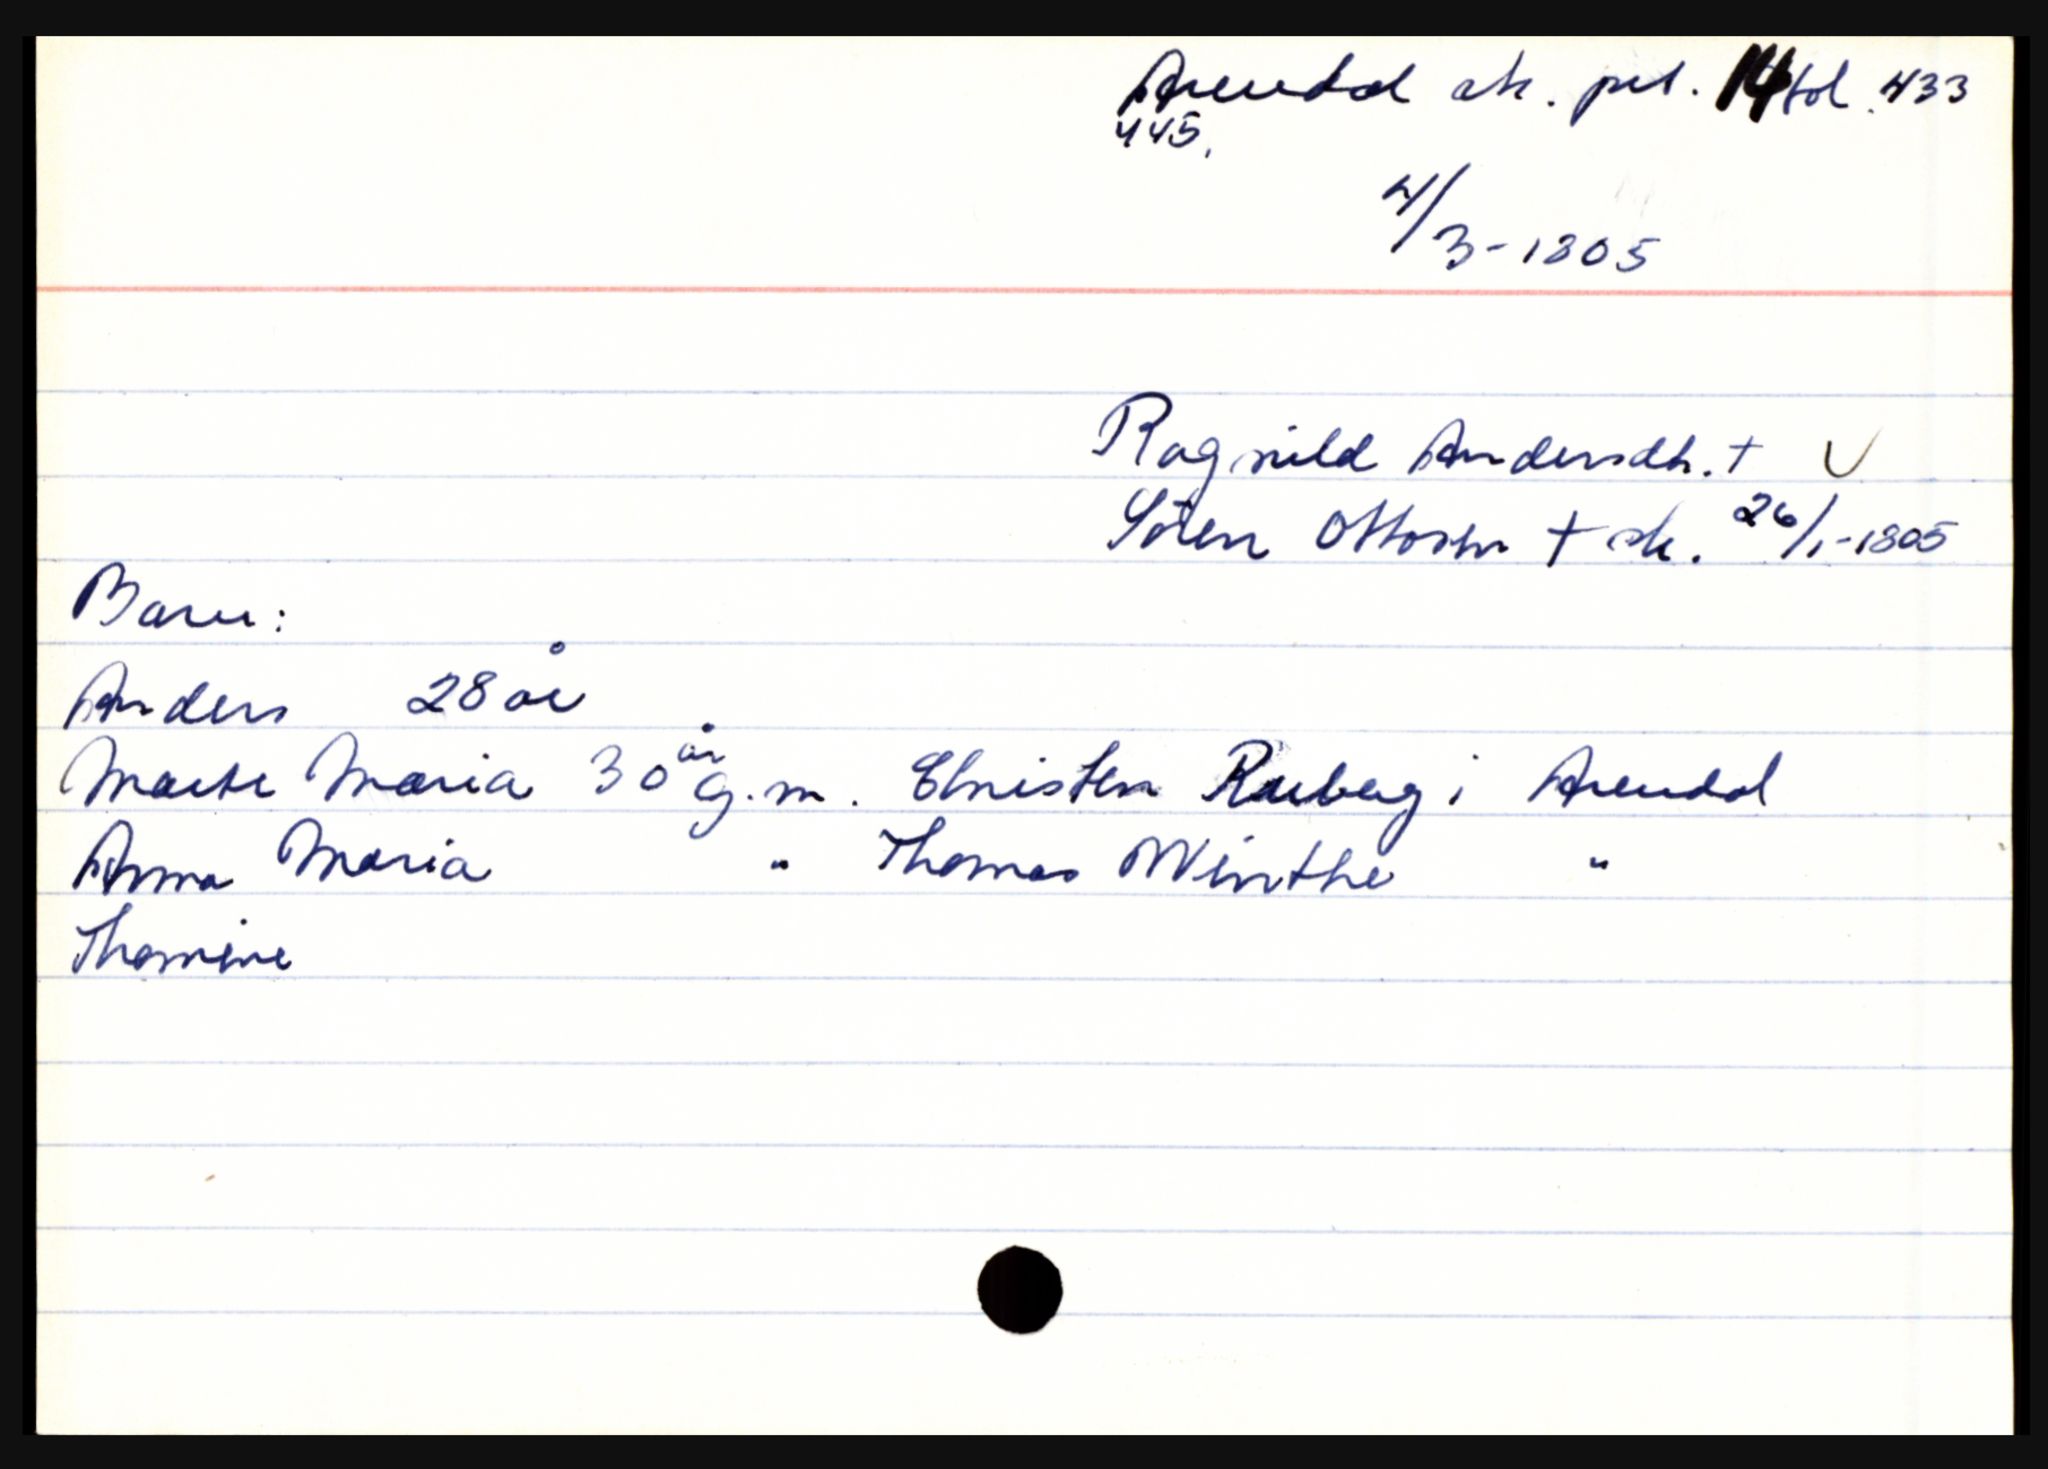 Arendal sk. prt. 14 fol. 433
445.
4/3-1805
Ragnild Andersdtr. + V
Sören Ottosen + sk. 26/1-1805
Barn:
Anders 28 år
Marte Maria 30 år g.m. Christen Ruberg i Arendal
Anna Maria " Thomas Winthe "
Thomine